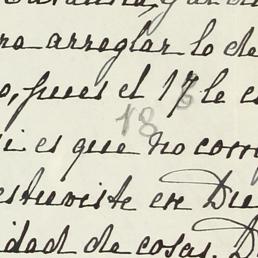 ra arreglar lo de
o, pues el 17 le es
18
i es que no corr
estuviste en Du
idad de cosas. D